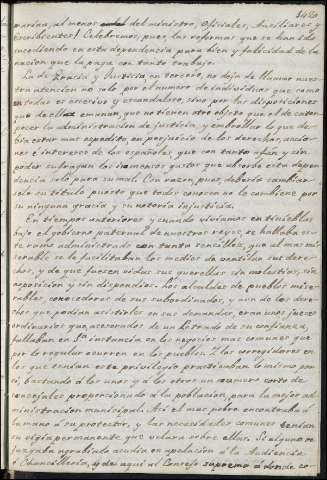 1480
marina, al menos del ministro, Oficiales, Auxiliares y
escribientes! Celebremos, pues, las reformas que se han ido
sucediendo en esta dependencia para bien y felicidad de la
nacion que la paga con tanto trabajo.
La de Gracia y Justicia en tercero, no deja de llamar nues-
tra atencion no solo por el numero de individuos que como
en todas es excesivo y escandaloso, sino por las disposiciones
que de ellas emanan, que no tienen otro objeto que el de entor-
pecer la administracion de justicia, y embrollar lo que de-
bia estar mas expedito en perjuicio de los derechos, accio-
nes é intereses de los españoles, que con tanto afan y sin
poder sufragan los inmensos gastos que absorbe esta depen-
dencia solo para su mal. Con razon, pues, debería cambiar
solo su titulo puesto que todos conocen no le combiene por
su ninguna gracia y su notoria injusticia.
En tiempos anteriores y cuando viviamos en tinieblas
bajo el gobierno paternal de nuestros reyes, se hallaba es-
te ramo administrado con tanta sencillez, que al mas mi-
serable se le facilitaban los medios de ventilar sus dere-
chos, y de que fuesen oidas sus querellas sin molestias, sin
oposicion y sin dispendios. Los alcaldes de pueblos mise-
rables, conocedores de sus subordinados, y aun de los dere-
chos que podian asistirles en sus demandas, eran unos jueces
ordinarios que, asesorados de un Letrado de su confianza,
fallaban en 1ª instancia en los negocios mas comunes que
por lo regular ocurren en los pueblos. Y los corregidores en
los que tenian este privilegio practicaban lo mismo por
sí, bastando á los unos y á los otros un numero corto de
concejales proporcionado á la poblacion, para la mejor ad-
ministracion municipal. Así el mas pobre encontraba al
humano á su protector, y las necesidades comunes tenian
su vigia permanente que velara sobre ellas. Si alguno se
juzgaba agraviado acudia en apelacion á la Audiencia
ó Chancilleria, y de aqui al Consejo supremo á donde co-